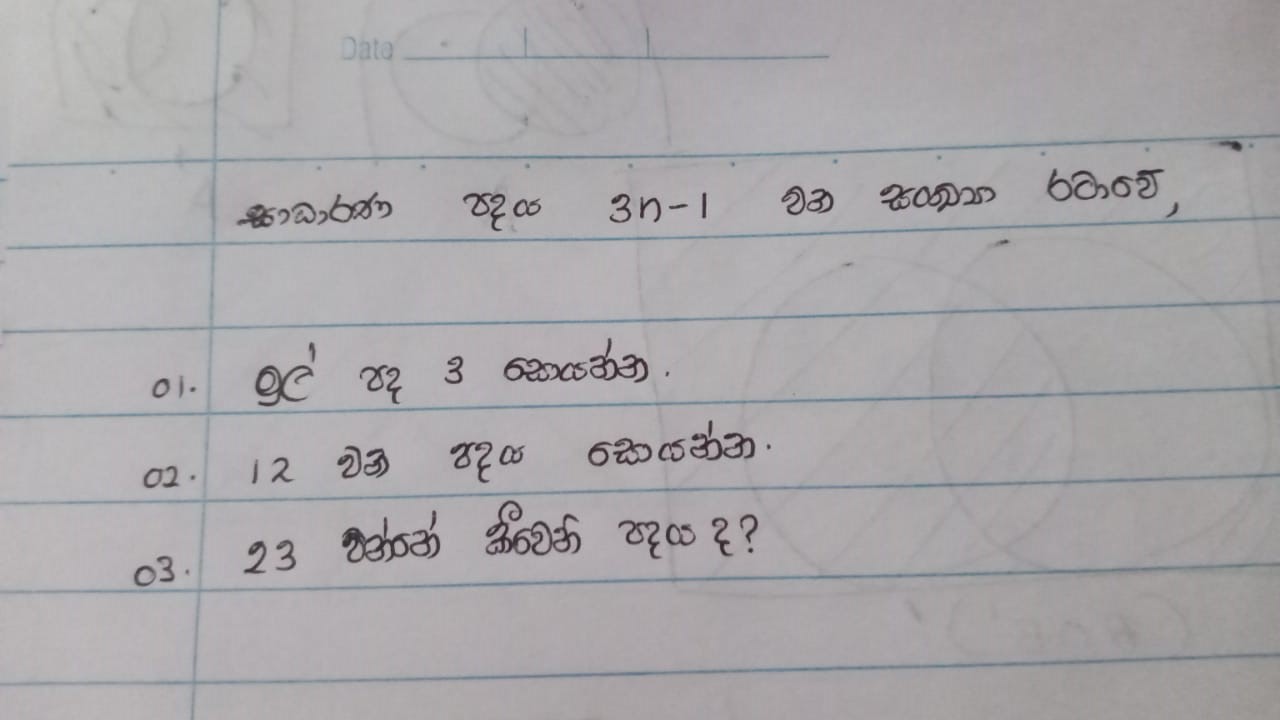 Date
සාධාරණ පදය 3n-1 වන සංඛ්‍යා රටාවේ,
01. මුල් පද 3 සොයන්න.
02. 12 වන පදය සොයන්න.
03. 23 වන්නේ කීවෙනි පදය ද?